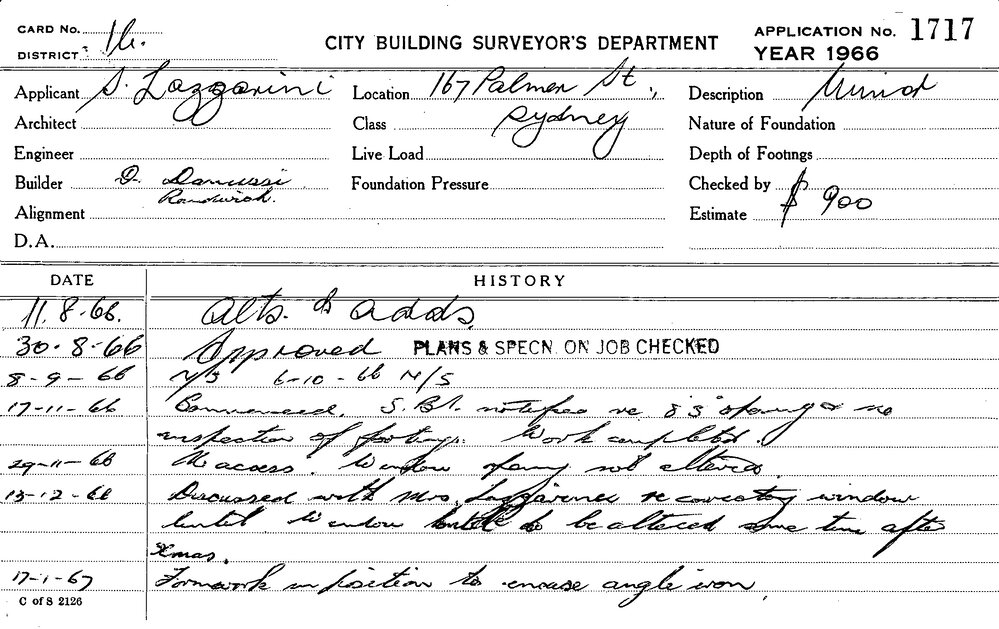 CARD No. 16.
DISTRICT
CITY BUILDING SURVEYOR'S DEPARTMENT
APPLICATION No. 1717
YEAR 1966
Applicant S. Lazzarini
Location 167 Palmer St.,
Description Minor
Architect
Class Sydney
Nature of Foundation
Engineer
Live Load
Depth of Footings
Builder D. Danussi
Randwick.
Foundation Pressure
Checked by
Alignment
Estimate $ 900
D.A.
DATE HISTORY
11.8.66. Alts. & adds.
30.8.66 Approved PLANS & SPECN. ON JOB CHECKED
8-9-66 N/S 6-10-66 N/S
17-11-66 Commenced. S.B.I. notified re 8'3" opening & no
inspection of footings. Work completed.
29-11-66 No access. Window opening not altered.
13-12-66 Discussed with Mrs. re correcting window
lintel. Window to be altered some time after
Xmas.
17-1-67 Formwork in position to encase angle iron.
C of S 2126